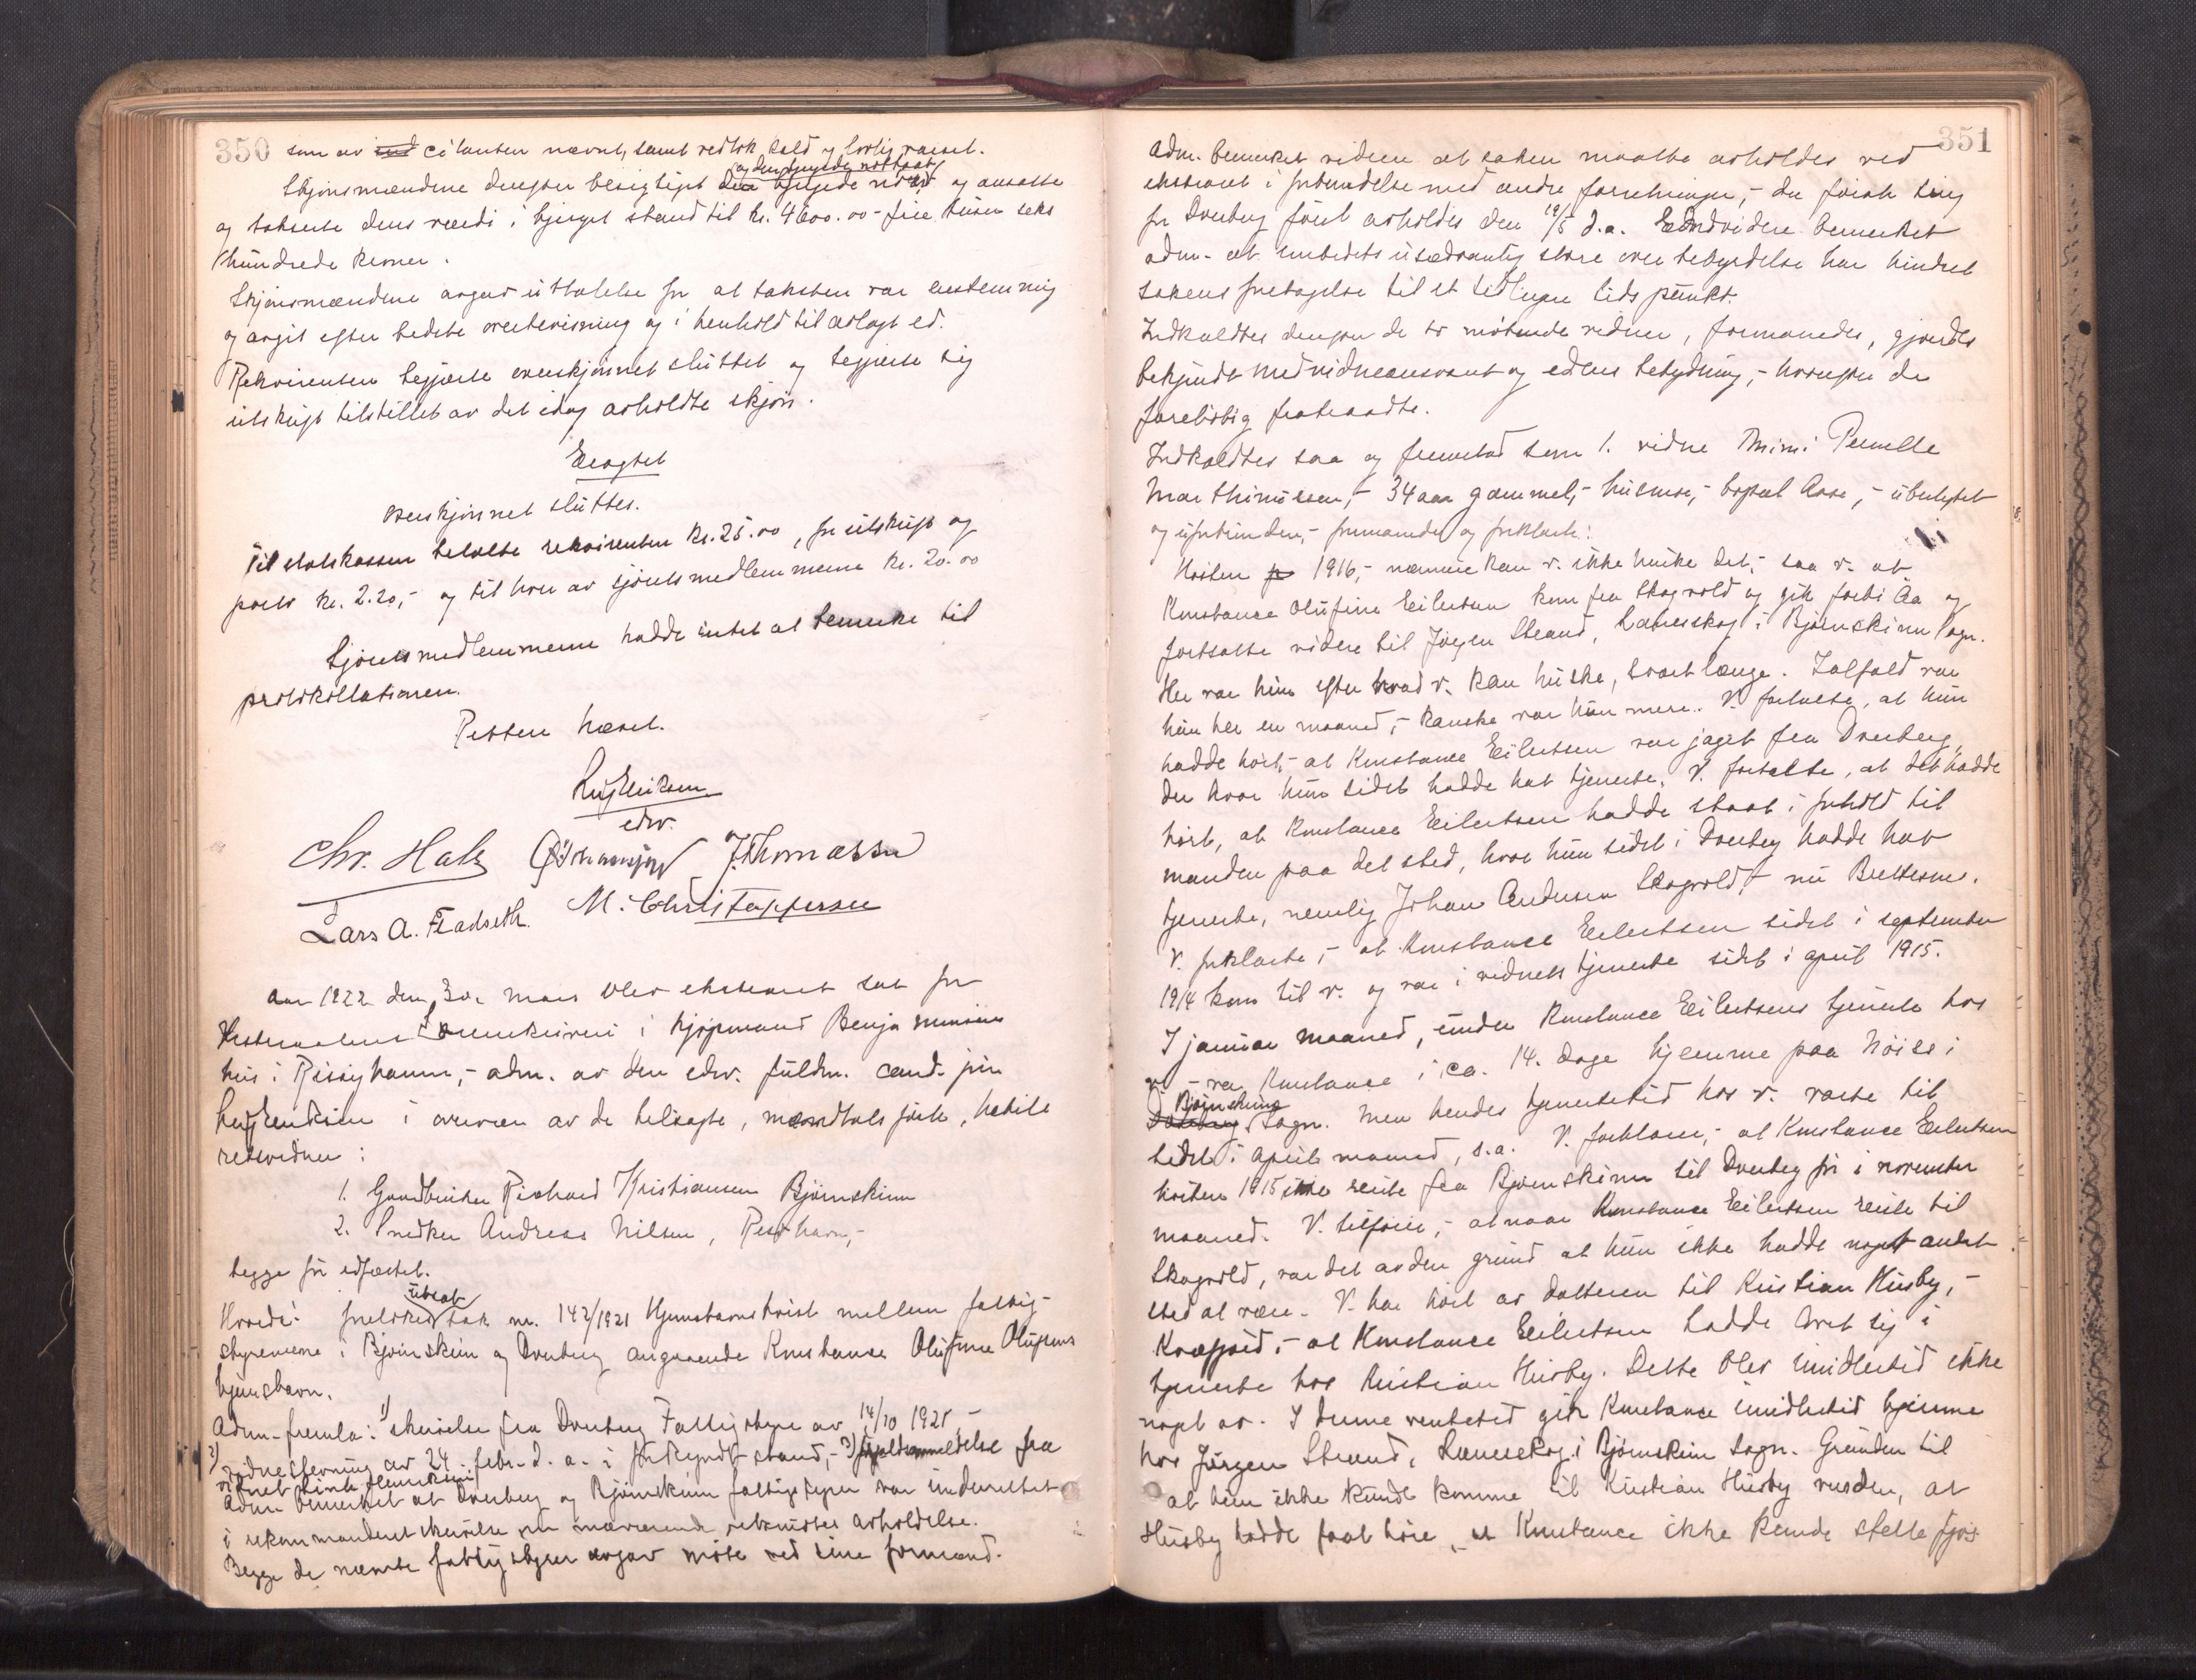 350
som av citanten nævnt, samt vedtok kald og lovlig varsel.
og den bjergede notbaat
Skjønsmændene derefter besigtiget den bjergede not og ansatte
og takserte dens værdi i bjerget stand til kr. 4600.00 - fire tusen seks
hundrede kroner.
Skjønsmændene avgav uttalelse for at taksten var enstemmig
og avgit efter bedste overbevisning og i henhold til avlagt ed.
Rekvirenten begjærte overskjønnet sluttet og begjærte sig
utskrift tilstillet av det idag avholdte skjøn.
Eragtet
Overskjønnet sluttes.
Til statskassen betalte rekvirenten kr. 25.00, for utskrift og
porto kr. 2.20,- og til hver av skjønsmedlemmerne kr. 20.00
Skjønsmedlemmerne hadde intet at bemerke til
protokollationen.
Retten hævet.
Eriksen
edsv.
Chr. Hals Johannessen J. Thomassen
Lars A. Fladseth. M. Christoffersen
Aar 1922 den 30. mars blev ekstraret sat for
Vesteraalens sorenskriveri i kjøpmand Benjaminsens
hus i Risøyhamn,- adm. av den edsv. fuldm. cand. jur.
Eriksen i overvær av de tilsagte, mandtalsførte, habile
retsvidner:
1. Gaardbruker Richard Kristiansen Bjørnskinn
2. Snedker Andreas Nilsen, Risøhavn,-
begge før edfæstet.
utsat
Hvorda: forelske sak nr. 142/1921 Hjemstavnstvist mellem fattig-
styrerne i Bjørnskin og Dverberg angaaende Konstance Olufine Olufsens
hjemstavn.
Adm. fremla: 1) skrivelse fra Dverberg Fattigstyre av 14/10 1921,-
2) vidnestevning av 24. febr. d.a. i forkyndt stand,- 3) anmeldelse fra
vidnet
Adm. bemerket at Dverberg og Bjørnskinn fattigstyrer var underrettet
i rekommanderet skrivelse om nærværende retsmøtes avholdelse.
Begge de nævnte fattigstyrer avgav møte ved sine formænd.
351
Adm. bemerket videre at saken maatte avholdes ved
ekstraret i forbindelse med andre forretninger,- da første ting
for Dverberg først avholdes den 19/5 d.a. Endvidere bemerket
adm. at embedets usædvanlig store overbebyrdelse har hindret
sakens foretagelse til et tidligere tidspunkt.
Indkaldtes derefter de to møtende vidner, formanedes, gjordes
bekjendt med vidneansvaret og edens betydning,- hvorefter de
foreløbig fratraadte.
Indkaldtes saa og fremstod som 1. vidne Mimi Pernelle
Marthinussen,- 34 aar gammel,- husmor,- bopæl Aase,- uberygtet
og uforbunden,- formanedes og forklarte:
Høsten 1916,- nærmere kan v. ikke huske det,- saa v. at
Konstance Olufine Eilertsen kom fra Skogvold og gik forbi Aa og
fortsatte videre til Jørgen Strand, Lanesskog i Bjørnskinn sogn.
Her var hun efter hvad v. kan huske, svært længe. Ialfald var
hun her en maaned,- kanske var hun mere. V. fortalte, at hun
hadde hørt,- at Konstance Eilertsen var jaget fra Dverberg,
der hvor hun sidst hadde hat tjeneste. V. fortalte, at det hadde
hørt, at Konstance Eilertsen hadde staat i forhold til
manden paa det sted, hvor hun sidst i Dverberg hadde hat
tjeneste, nemlig Johan Andersen Skogvold,- nu Bretterne.
V. forklarte,- at Konstance Eilertsen sidst i september
1914 kom til v. og var i vidnets tjeneste sidst i april 1915.
I januar maaned, under Konstance Eilertsens tjeneste hos
v.- var Konstance i ca. 14 dage hjemme paa Nøiss i
Bjørnskinn
Dverberg sogn. Men hendes tjenestetid hos v. varte til
sidst i april maaned, s.a. V. forklarer,- at Konstance Eilertsen
høsten 1915 ikke reiste fra Bjørnskinn til Dverberg før i november
maaned. V. tilføier,- at naar Konstance Eilertsen reiste til
Skogvold, var det av den grund at hun ikke hadde noget andet
sted at være. V. har hørt av datteren til Kristian Husby,-
Kvæfjord,- at Konstance Eilertsen hadde lovet sig i
tjeneste hos Kristian Husby. Dette blev imidlertid ikke
noget av. I denne ventetid gik Konstance imidlertid hjemme
hos Jørgen Strand, Lanesskog i Bjørnskinn sogn. Grunden til
at hun ikke kunde komme til Kristian Husby var den, at
Husby hadde faat høre, at Konstance ikke kunde stelle fjøs